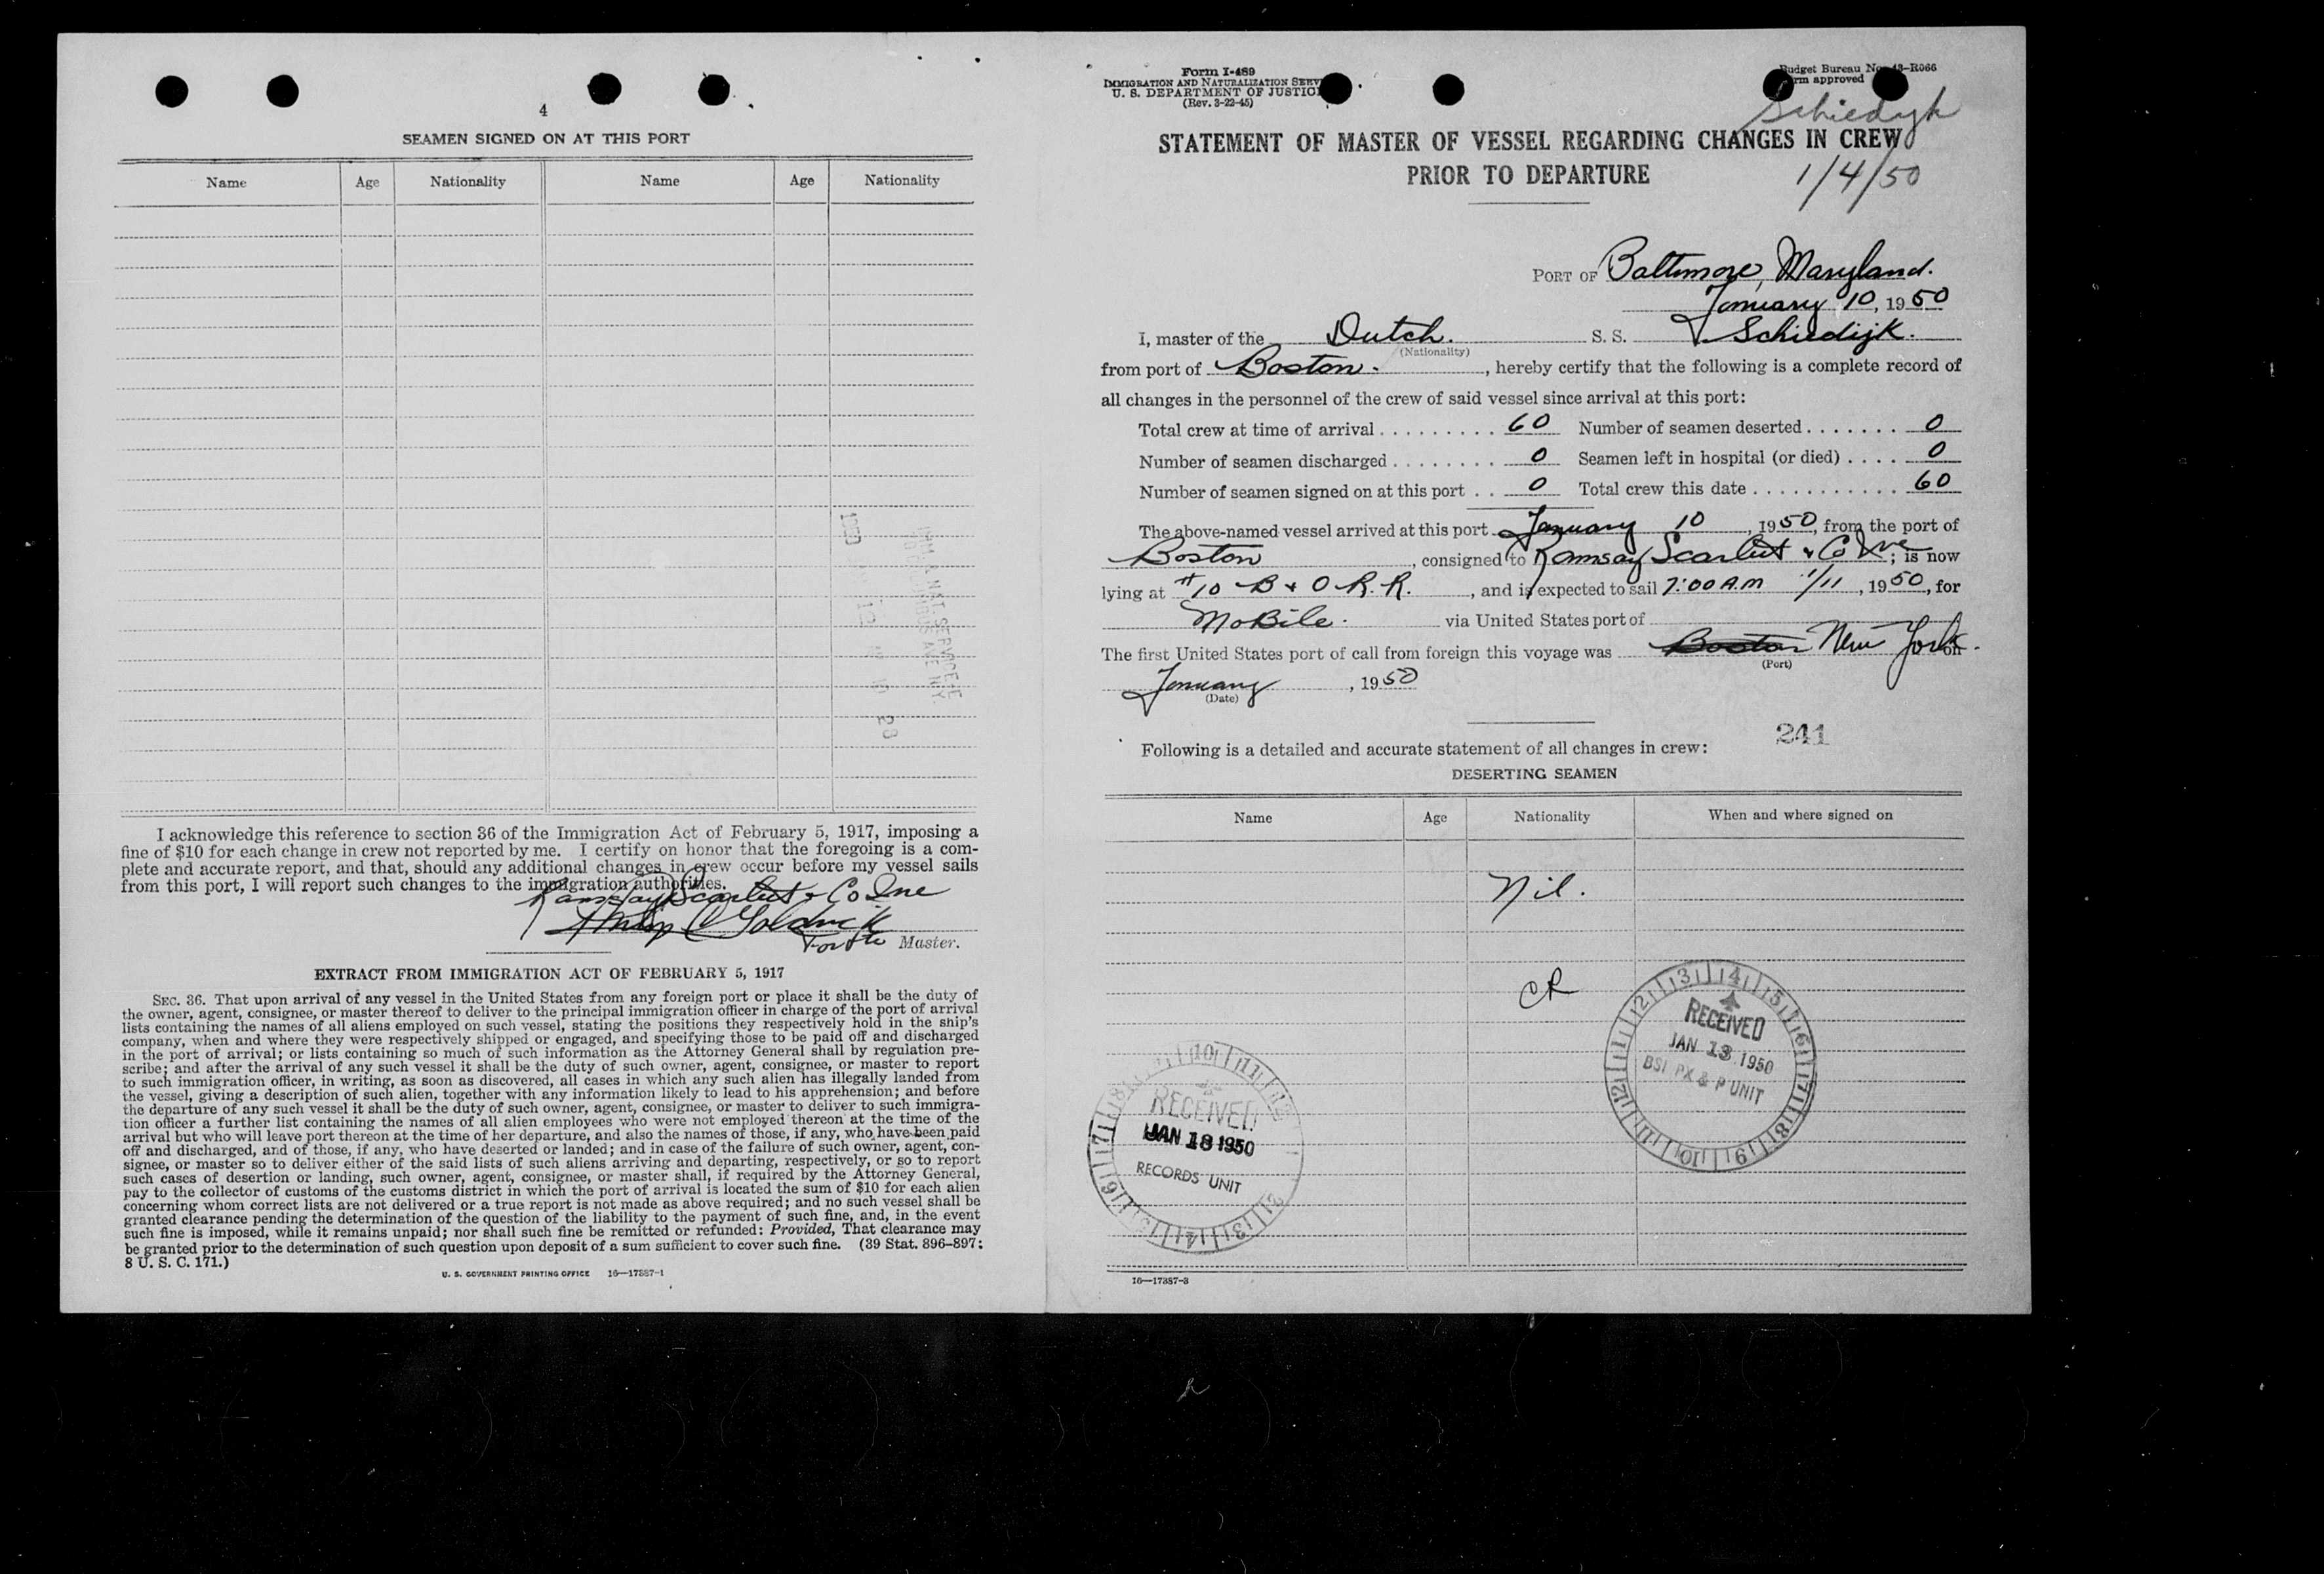 4
SEAMEN SIGNED ON AT THIS PORT
Name Age Nationality Name Age Nationality
I acknowledge this reference to section 36 of the Immigration Act of February 5, 1917, imposing a
fine of $10 for each change in crew not reported by me. I certify on honor that the foregoing is a com-
plete and accurate report, and that, should any additional changes in crew occur before my vessel sails
from this port, I will report such changes to the immigration authorities.
Ramsay Scarlett & Co Inc
For the Master.
EXTRACT FROM IMMIGRATION ACT OF FEBRUARY 5, 1917
SEC. 36. That upon arrival of any vessel in the United States from any foreign port or place it shall be the duty of
the owner, agent, consignee, or master thereof to deliver to the principal immigration officer in charge of the port of arrival
lists containing the names of all aliens employed on such vessel, stating the positions they respectively hold in the ship's
company, when and where they were respectively shipped or engaged, and specifying those to be paid off and discharged
in the port of arrival; or lists containing so much of such information as the Attorney General shall by regulation pre-
scribe; and after the arrival of any such vessel it shall be the duty of such owner, agent, consignee, or master to report
to such immigration officer, in writing, as soon as discovered, all cases in which any such alien has illegally landed from
the vessel, giving a description of such alien, together with any information likely to lead to his apprehension; and before
the departure of any such vessel it shall be the duty of such owner, agent, consignee, or master to deliver to such immigra-
tion officer a further list containing the names of all alien employees who were not employed thereon at the time of the
arrival but who will leave port thereon at the time of her departure, and also the names of those, if any, who have been paid
off and discharged, and of those, if any, who have deserted or landed; and in case of the failure of such owner, agent, con-
signee, or master so to deliver either of the said lists of such aliens arriving and departing, respectively, or so to report
such cases of desertion or landing, such owner, agent, consignee, or master shall, if required by the Attorney General,
pay to the collector of customs of the customs district in which the port of arrival is located the sum of $10 for each alien
concerning whom correct lists are not delivered or a true report is not made as above required; and no such vessel shall be
granted clearance pending the determination of the question of the liability to the payment of such fine, and, in the event
such fine is imposed, while it remains unpaid; nor shall such fine be remitted or refunded: Provided, That clearance may
be granted prior to the determination of such question upon deposit of a sum sufficient to cover such fine. (39 Stat. 896-897;
8 U. S. C. 171.)
U. S. GOVERNMENT PRINTING OFFICE 16—17387-1
Form I-489
IMMIGRATION AND NATURALIZATION SERV
U. S. DEPARTMENT OF JUSTIC
(Rev. 3-22-45)
Budget Bureau No. 43-R066
rm approved
Schiedyk
STATEMENT OF MASTER OF VESSEL REGARDING CHANGES IN CREW
PRIOR TO DEPARTURE
1/4/50
PORT OF Baltimore, Maryland.
January 10, 1950
I, master of the Dutch. S. S. Schiedijk.
(Nationality)
from port of Boston., hereby certify that the following is a complete record of
all changes in the personnel of the crew of said vessel since arrival at this port:
Total crew at time of arrival 60 Number of seamen deserted 0
Number of seamen discharged 0 Seamen left in hospital (or died) 0
Number of seamen signed on at this port 0 Total crew this date 60
The above-named vessel arrived at this port January 10, 1950, from the port of
Boston, consigned to Ramsay Scarlett & Co Inc; is now
lying at #10 B & O R.R., and is expected to sail 7:00 A.M 1/11, 1950, for
Mobile. via United States port of
The first United States port of call from foreign this voyage was Boston New York. on
(Port)
January, 1950
(Date)
241
Following is a detailed and accurate statement of all changes in crew:
DESERTING SEAMEN
Name Age Nationality When and where signed on
Nil.
CR
RECEIVED
JAN 13 1950
BSI PX & P UNIT
RECEIVED
JAN 18 1950
RECORDS UNIT
16—17387-3